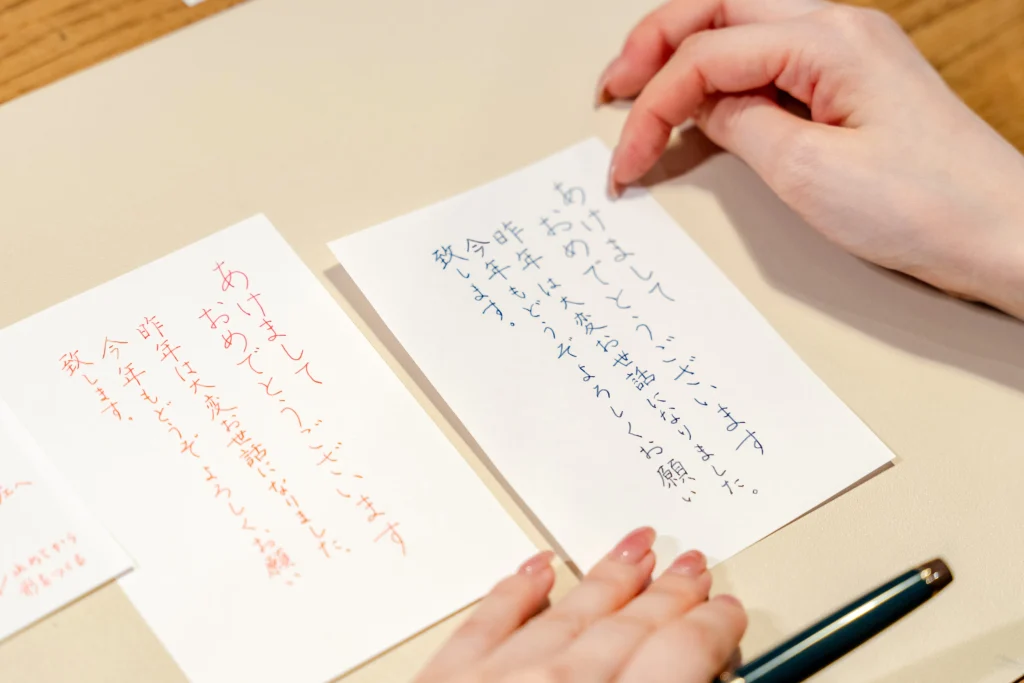 あけまして
おめでとうございます
昨年は大変お世話になりました。
今年もどうぞよろしくお願い
致します。
あけまして
おめでとうございます
昨年は大変お世話になりました。
今年もどうぞよろしくお願い
致します。
止めてから
形をつくる